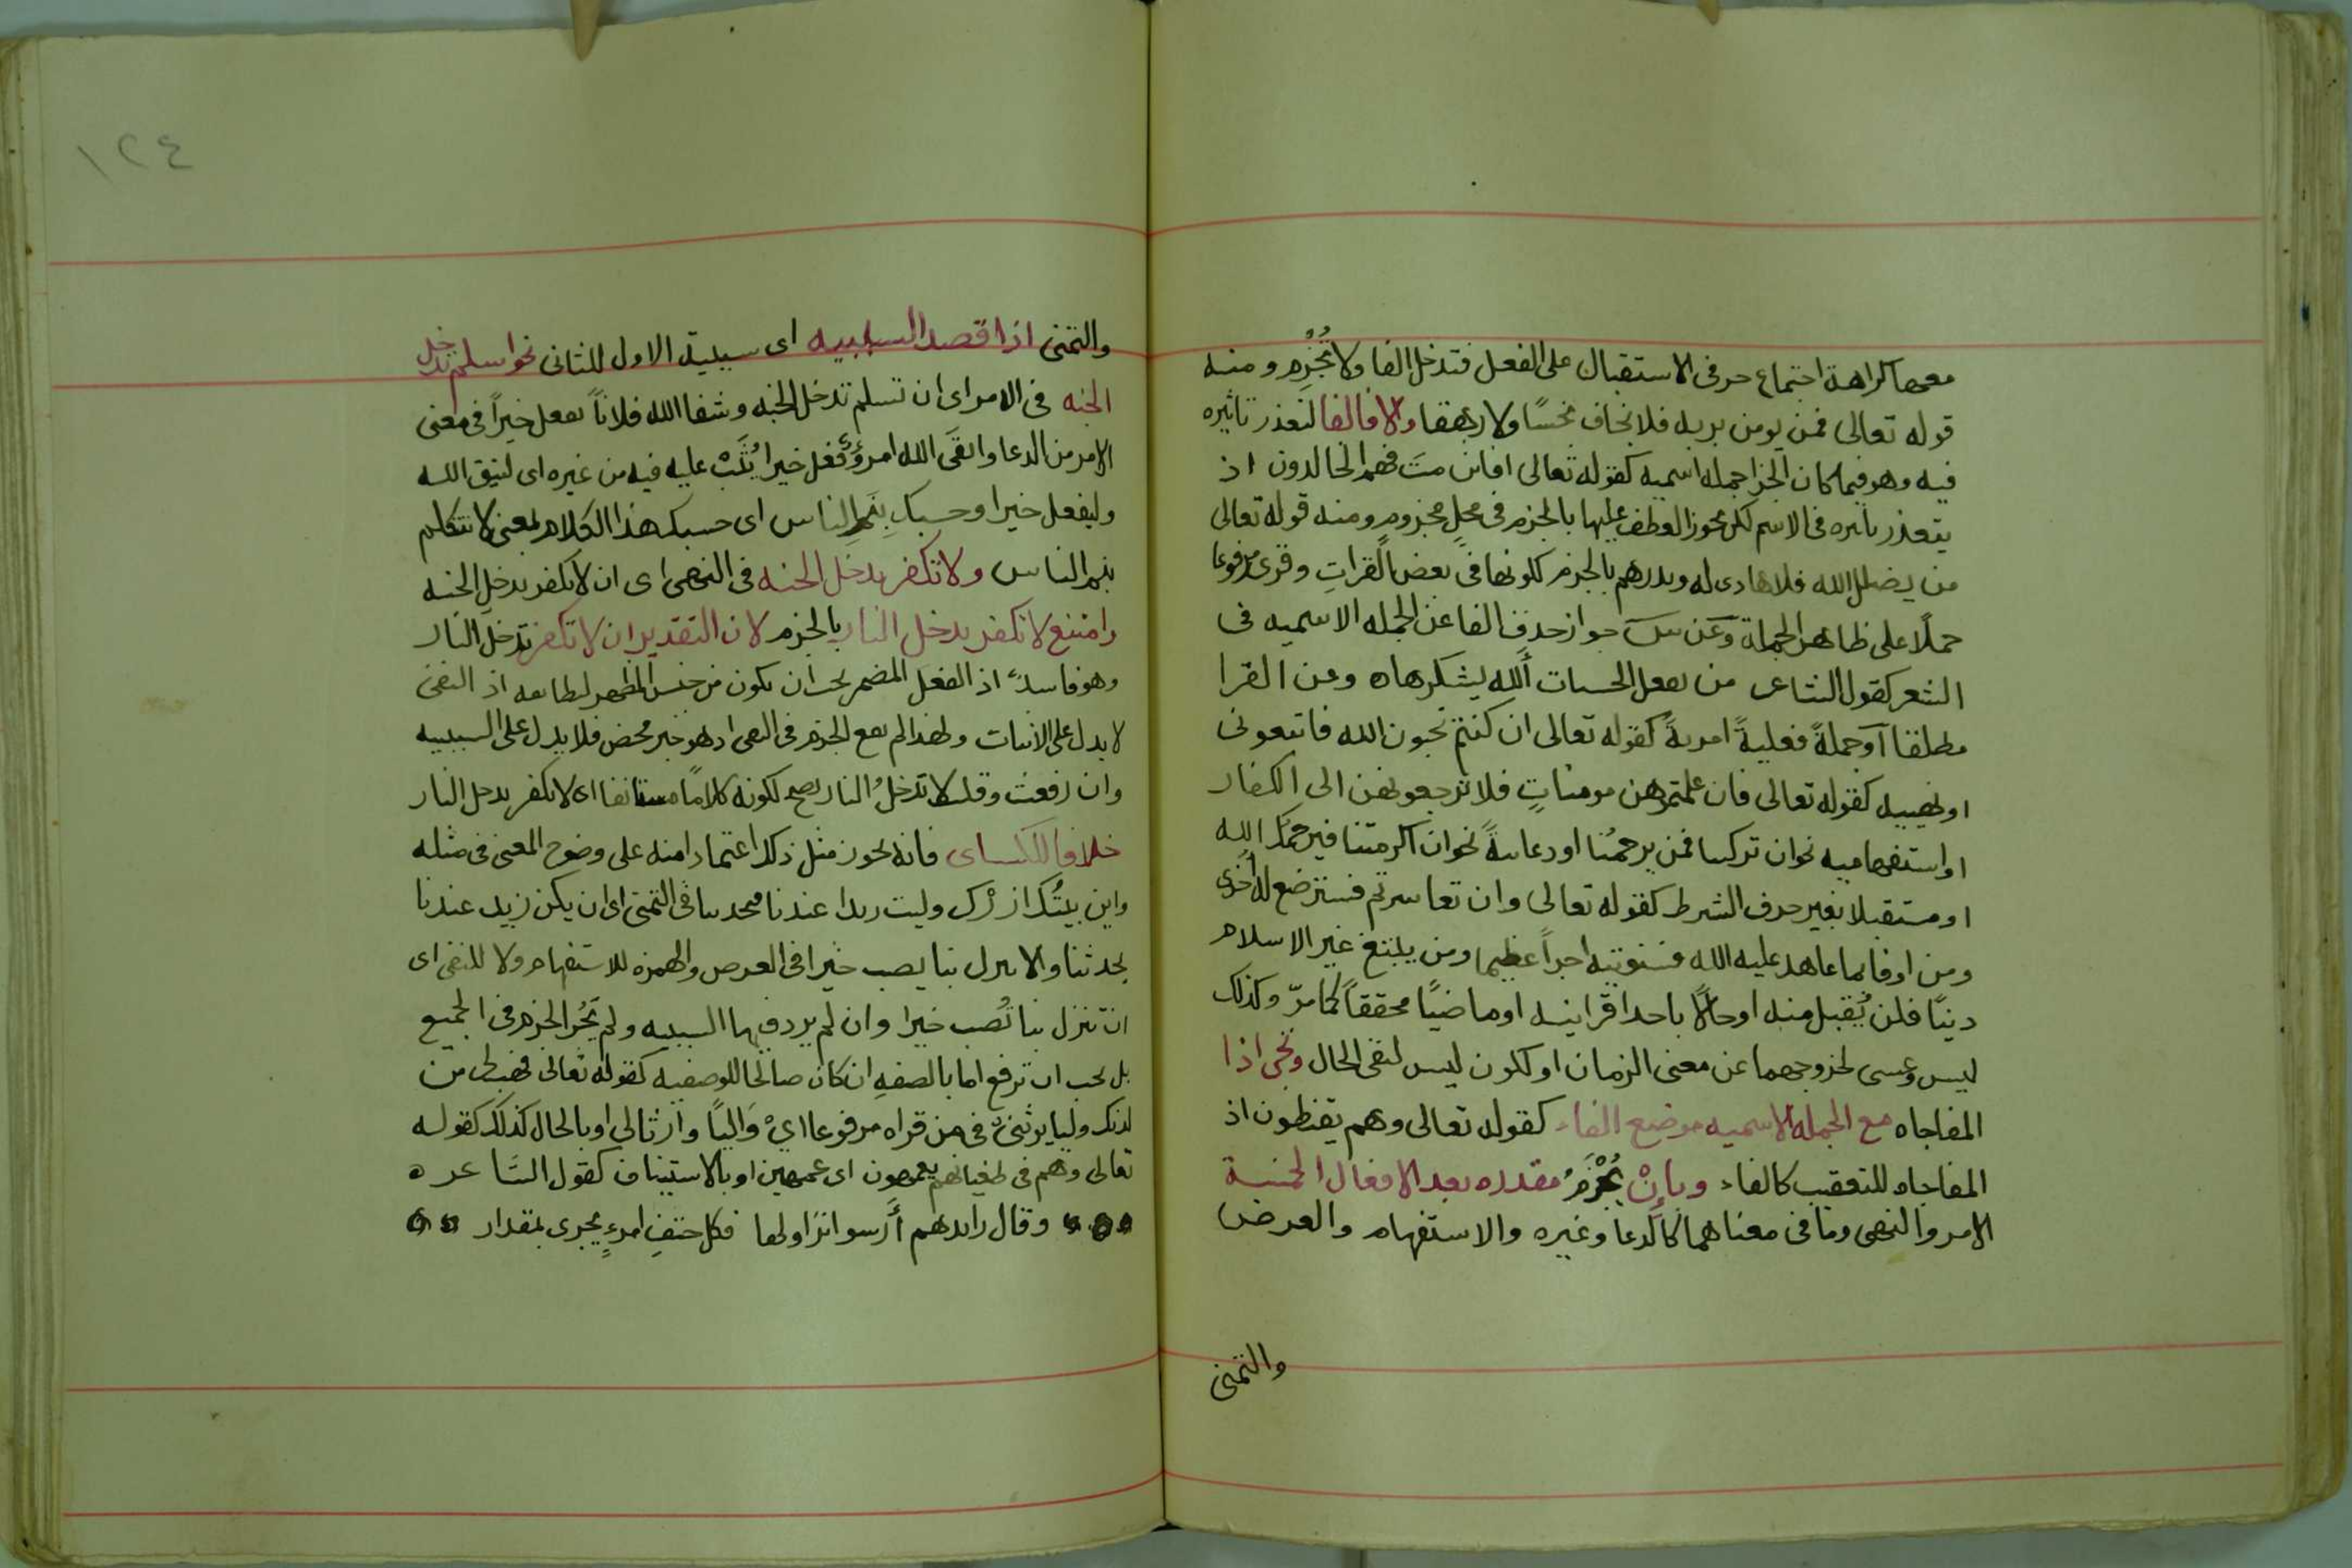 معها كراهة اجتماع حرفى الاستقبال على الفعل فتدخل الفا ولا تُجْزم ومنه
قوله تعالى فمن يومن بربه فلا يخاف بخسًا ولا رهقا والا فالفا لتعذر تاثيره
فيه وهو فيما كان الجزا جمله اسميه كقوله تعالى افاىن متَ فهم الخالدون اذ
يتعذر تاىىره فى الاسم لكن ىحوز العطف عليها بالجزم فى محلٍ مجزومٍ ومنه قوله تعالى
من يضلل الله فلا هادى له ويدرهم بالجزم كلونها فى بعض القراتِ وقرئ مرفوعا
حملًا على ظاهر الجملة وعَن س جواز حذفِ الفا عن الجمله الاسميه فى
الشعر كقول الشاعر من ىفعل الحسىات أللهِ يشكرهاه وعن الفرا
مطلقا آو جملةً فعليةً امريةً كقوله تعالى ان كنتم تحبون الله فاتبعونى
او نهييه كقوله تعالى فان علمتموهن مومناتٍ فلا ترجعوهن الى الكفار
او استفهاميه نحو ان تركىىا فمن يرحمُنا او دعاىىةً نحو ان اكرمتنا فيرحمك الله
او مستقبلا بغير حرف الشرط كقوله تعالى وان تعاسرتم فسترضع له أخرى
ومن اوفا بما عاهد عليه الله فسنوتيه اجراً عظيما ومن يبتغ غير الاسلام
دينًا فلن يُقبل منه او حالًا باحد قراينه او ماضيًا محققاً كما مرّ وكذلك
ليس وعسى لخروجهما عن معنى الزمان او لكون ليس لنفى الحال وتجى اذا
المفاجاه مع الجمله الاسميه موضع الفاء كقوله تعالى وهم يقنطون اذ
المفاجاه للتعقيب كالفاء وبإنْ تُجْزَمُ مقدره بعد الافعال الخمسة
الامر والنهى وما فى معناهما كالدعا وغيره والاستفهام والعرض
والتمنى
١٢٤
والتمنى اذا قصد السببيه اى سببية الاول للثانى نحو اسلم تدخل
الجنه فى الامر اى ان تسلم تدخل الجنه وشفا الله فلاناً ىفعل خيراً فى معنى
الامر من الدعا واتقَى الله امروٌ فعل خيرا يُثَبْ عليه فيه من غيره اى ليتق الله
وليفعل خيرا وحسبك ينَمِ الناس اى حسبك هذا الكلام بمعنى لا تتكلم
ينم الناس ولا تكفر ىدخل الجنه فى النهى اى ان لا ىكفر ىدخل الجنه
وامتنع لا تكفر ىدخل النار بالجزم لان التقدير ان لا تكفر تدخل النار
وهو فاسدٌ اذ الفعل المضمر يجب ان يكون من جنس المظهر ليطابقه اذ النفى
لا يدل على الاثبات ولهذا لم ىقع الجزم فى النفى اذ هو خبر محض فلا يدل على السببيه
وان رفعت وقلت لا تدخلُ النار ىصح لكونه كلامًا مستانفا اى لا ىكفر ىدخل النار
خلافا للكساى فانه ىحوز مثل ذلك اعتمادا منه على وضوح المعنى فى مثله
واين بيتُك ازرْك وليت زيدا عندنا ىحدثنا فى التمنى اى ان يكن زيد عندنا
يحدثنا والا تنزل بنا ىصب خيرا فى العرض والهمزه للاستفهام ولا للنفى اى
ان تنزل بنا تُصب خيرا وان لم يرد فيها السببيه ولم يَجُز الجزم فى الجميع
بل يجب ان ترفع اما بالصفه ان كان صالحا للوصفيه كقوله تعالى فهب لى من
لدنك وليا يرثنى فى من قراه مرفوعا اىْ وَاليًا وارثا لى او بالحال كذلك كقوله
تعالى وهم فى طغيانهم يعمهون اى عمهين او بالاستيناف كقول الشاعر ه
وقال رائدهم أرسوا نزاولها فكل حتفِ امرءٍ يجرى بمقدار